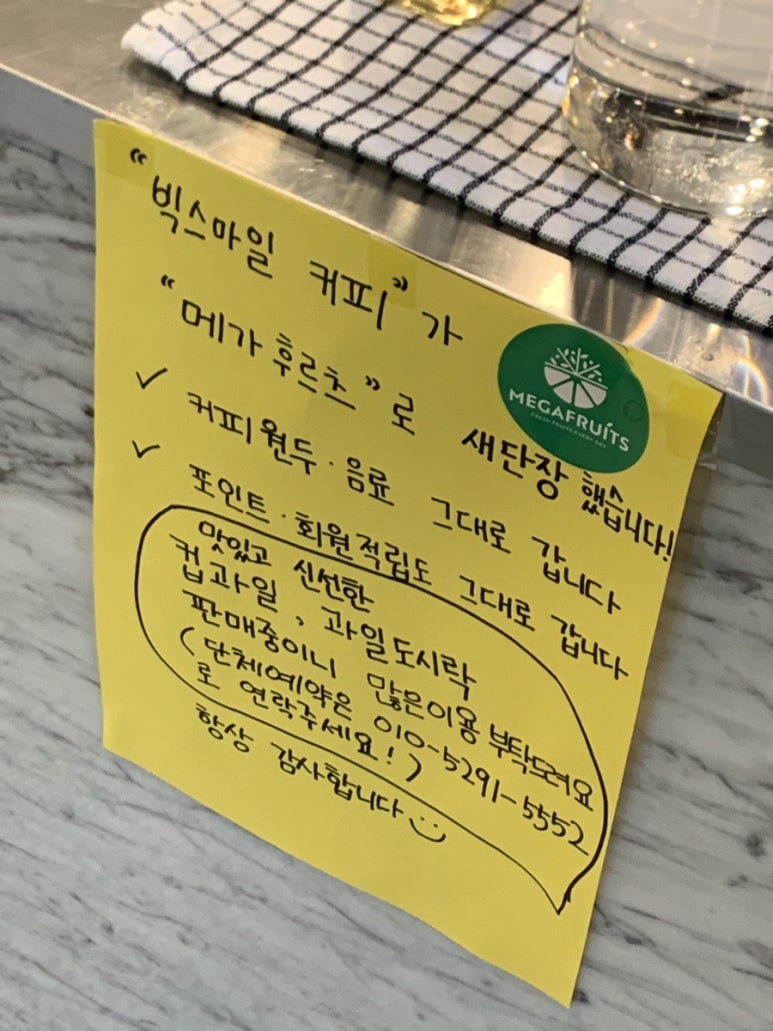 "빅스마일 커피"가
"메가후르츠"로 새단장 했습니다!
✓ 커피원두·음료 그대로 갑니다
✓ 포인트·회원적립도 그대로 갑니다
맛있고 신선한
컵과일, 과일도시락
판매중이니 많은이용부탁드려요
(단체예약은 010-5291-5552
로 연락주세요!)
항상 감사합니다
MEGAFRUITS
FRESH FRUITS EVERY DAY